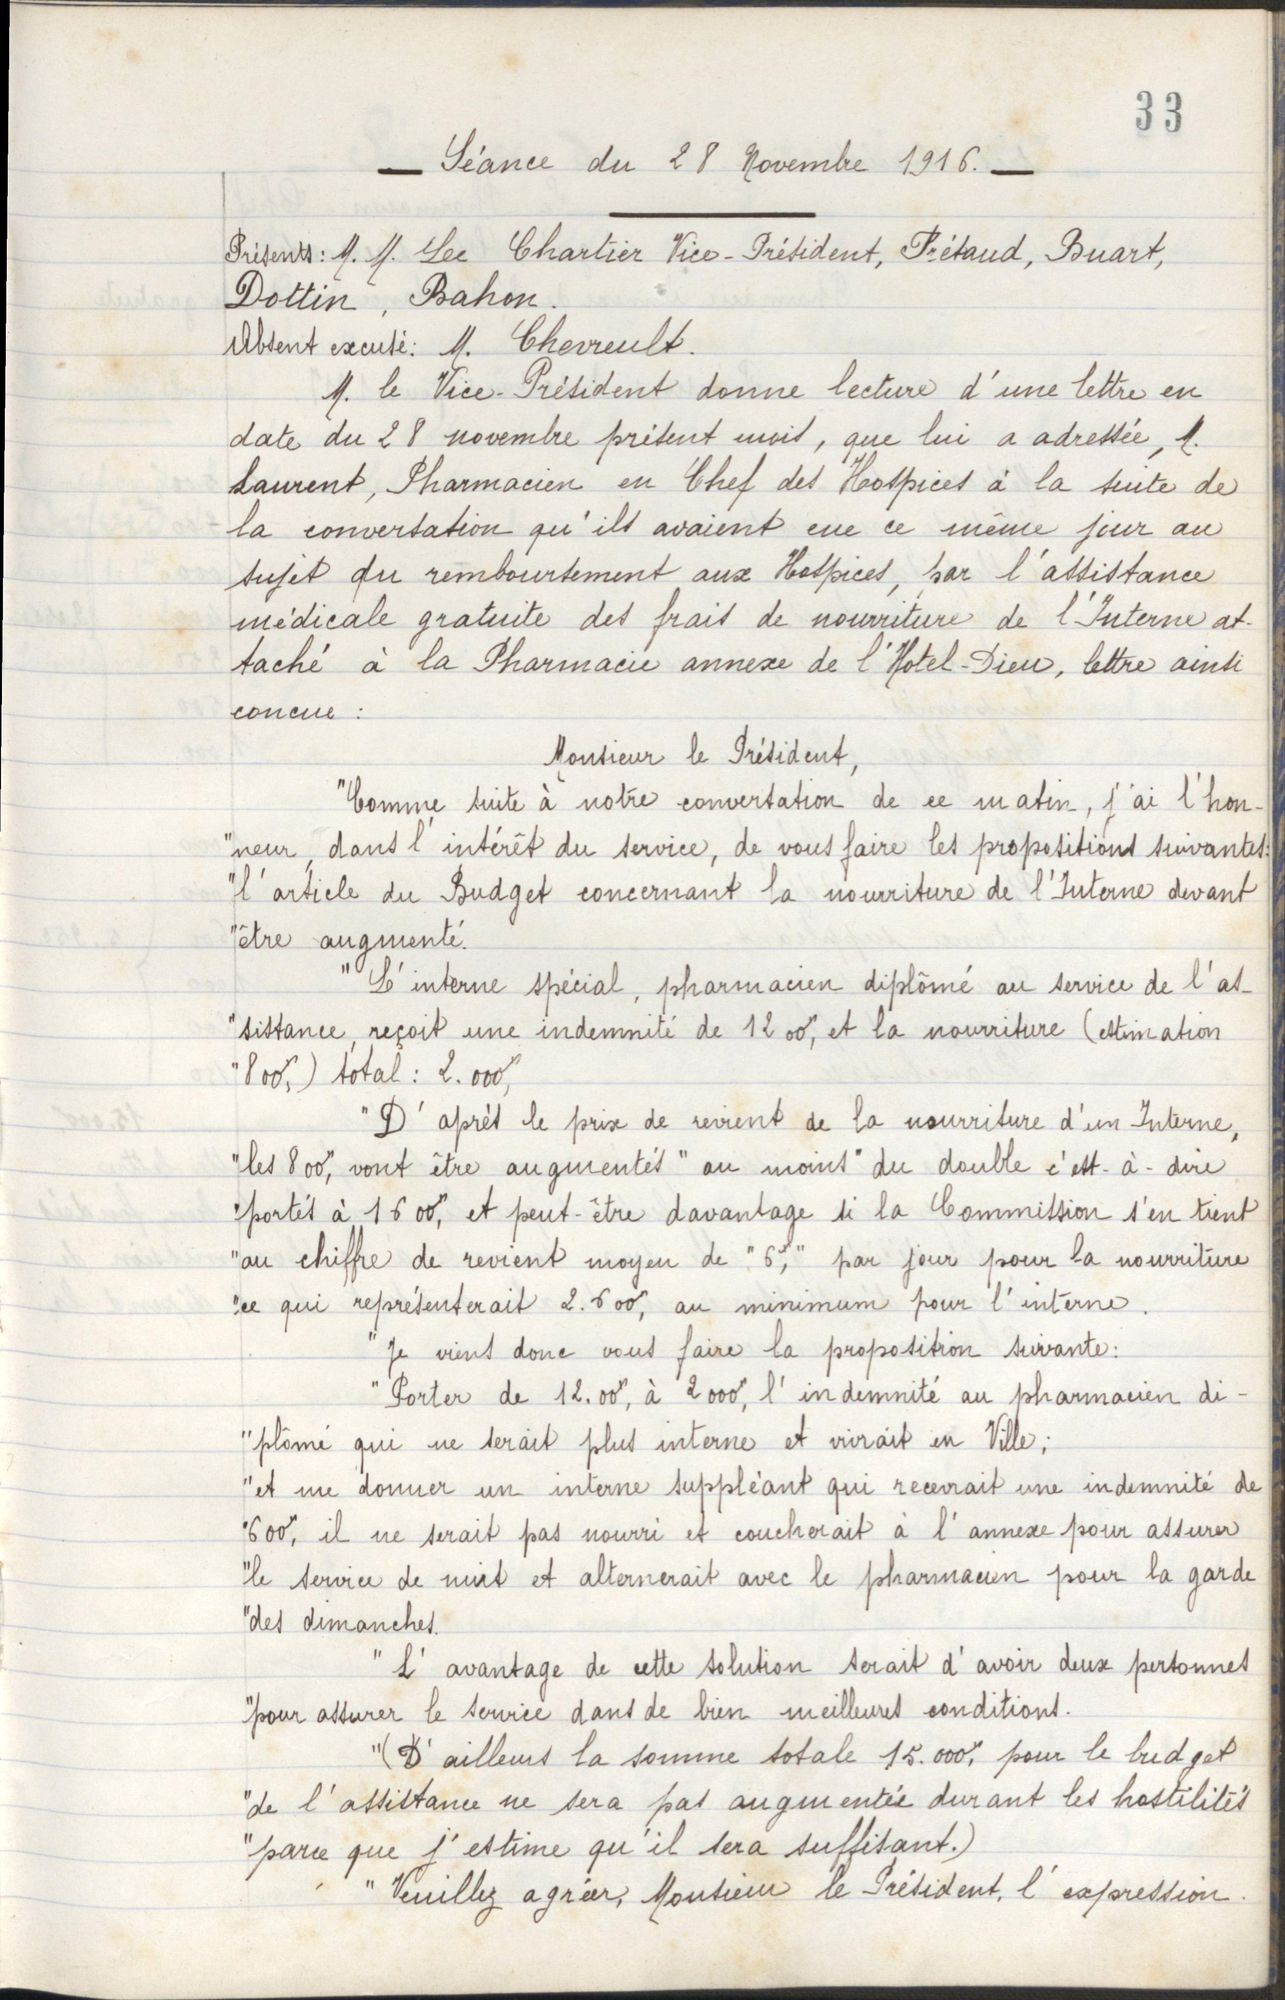 33
— Séance du 28 Novembre 1916. —
Présents: M. M. Lec Chartier Vice-Président, Prétaud, Buart,
Dottin, Bahon.
Absent excusé: M. Chevreult.
M. le Vice-Président donne lecture d'une lettre en
date du 28 novembre présent mois, que lui a adressée, M.
Laurent, Pharmacien en Chef des Hospices à la suite de
la conversation qu'ils avaient eue ce même jour au
sujet du remboursement aux Hospices, par l'assistance
médicale gratuite des frais de nourriture de l'Interne at-
taché à la Pharmacie annexe de l'Hotel-Dieu, lettre ainsi
concue :
Monsieur le Président,
"Comme suite à notre conversation de ce matin, j'ai l'hon-
"neur, dans l'intérêt du service, de vous faire les propositions suivantes:
"l'article du Budget concernant la nourriture de l'Interne devant
"être augmenté.
"L'interne spécial, pharmacien diplômé au service de l'as-
"sistance, reçoit une indemnité de 1200f, et la nourriture (estimation
"800f,) total : 2.000f,
"D'aprés le prix de revient de la nourriture d'un Interne,
"les 800f, vont être augmentés "au moins" du double c'est-à-dire
"portés à 1600f, et peut-être davantage si la Commission s'en tient
"au chiffre de revient moyen de "6f," par jour pour la nourriture
"ce qui représenterait 2.600f, au minimum pour l'interne.
"Je viens donc vous faire la proposition suivante:
"Porter de 12.00f, à 2000f, l'indemnité au pharmacien di-
"plômé qui ne serait plus interne et vivrait en Ville;
"et me donner un interne suppléant qui recevrait une indemnité de
"600f, il ne serait pas nourri et coucherait à l'annexe pour assurer
"le service de nuit et alternerait avec le pharmacien pour la garde
"des dimanches.
"L'avantage de cette solution serait d'avoir deux personnes
"pour assurer le service dans de bien meilleures conditions.
"(D'ailleurs la somme totale 15.000f, pour le budget
"de l'assistance ne sera pas augmentée durant les hostilités
"parce que j'estime qu'il sera suffisant.)
"Veuillez agréer, Monsieur le Président, l'expression